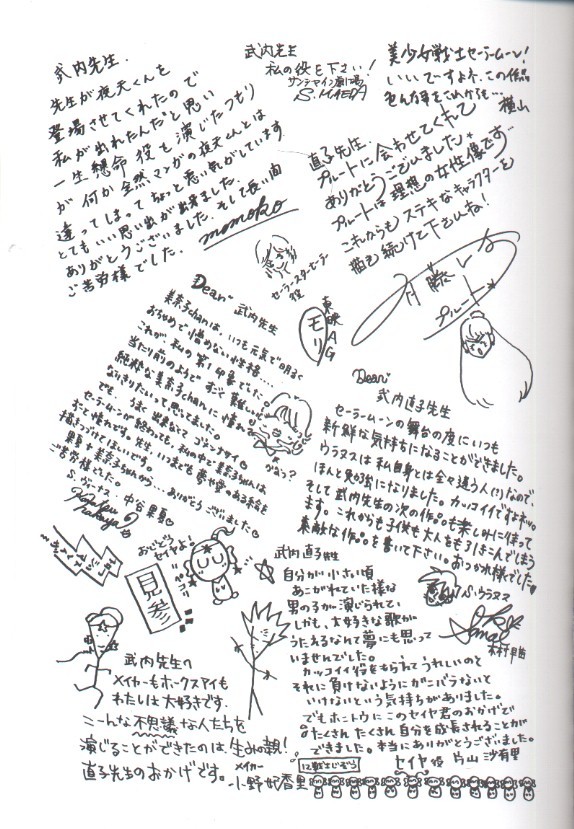 武内先生.
先生が夜天くんを
登場させてくれたので
私が出れたんだと思い
一生懸命役も演じたつもり
が何か全然マンガの夜天くんとは
違ってしまってちょっと悪い気がしています.
とてもいい思い出が出来ました.
ありがとうございました.そして長い間
ご苦労様でした.
momoko
武内先生
私の役を下さい!
サンデマイン劇場
S.MAEDA
美少女戦士セーラームーン!
いいでーすよネ、この作品
横山
直子先生.
プルートに会わせてくれて
ありがとうございました
プルートは理想の女性像です
これからもステキなキャラクターを
描き続けて下さいね!
プルート
セーラースターヒーラー
役
東映AG
モリ
Dear
武内先生
美奈子chanは、いつも元気で明るく
おちゃめで憎めない性格…
これが、私の第1印象でした。
当り前のようで、すごく難しい…
純粋な美奈子chanに憧れ
なりきりたいって思ってました。
でも、うまく出来なくてゴメンナサイ
セーラームーンが終わっても、私の中に美奈子chanは
ずっと憧れです。先生、いつまでも夢と愛のある作品を
描きつづけてほしいです。
ご苦労様でした。
ありがとうございました
S.ヴィーナス.中谷果夏
Dear
武内直子先生
セーラームーンの舞台の度にいつも
新鮮な気持ちになることができました。
ウラヌスは私自身とは全々違う人(!)なので、
ほんと勉強になりました。カッコイイですよネッ。
そして武内先生の次の作品も楽しみに待って
ます。これからも子供も大人をもとりこんでしまう
素敵な作品を書いて下さい。おつかれ様でした♥
S.ウラヌス
木村早苗
おめでとう
セイヤよ!
見参
武内直子先生
自分が小さい頃
あこがれていた様な
男の子が演じられて、
しかも、大好きな歌が
うたえるなんて夢にも思って
いませんでした。
カッコイイ役をもられてうれしいのと
それに負けないようにガンバラないと
いけないという気持ちがありました。
でもホントウにこのセイヤ君のおかげで
たくさんたくさん自分を成長されることが
できました。本当にありがとうございました。
セイヤ役 片山沙有里
武内先生へ
メイカーもホークスアイも
わたしは大好きです.
こーんな不思議な人たちを
演じることができたのは,生みの親!
直子先生のおかげです。
メイカー
小野妃香里